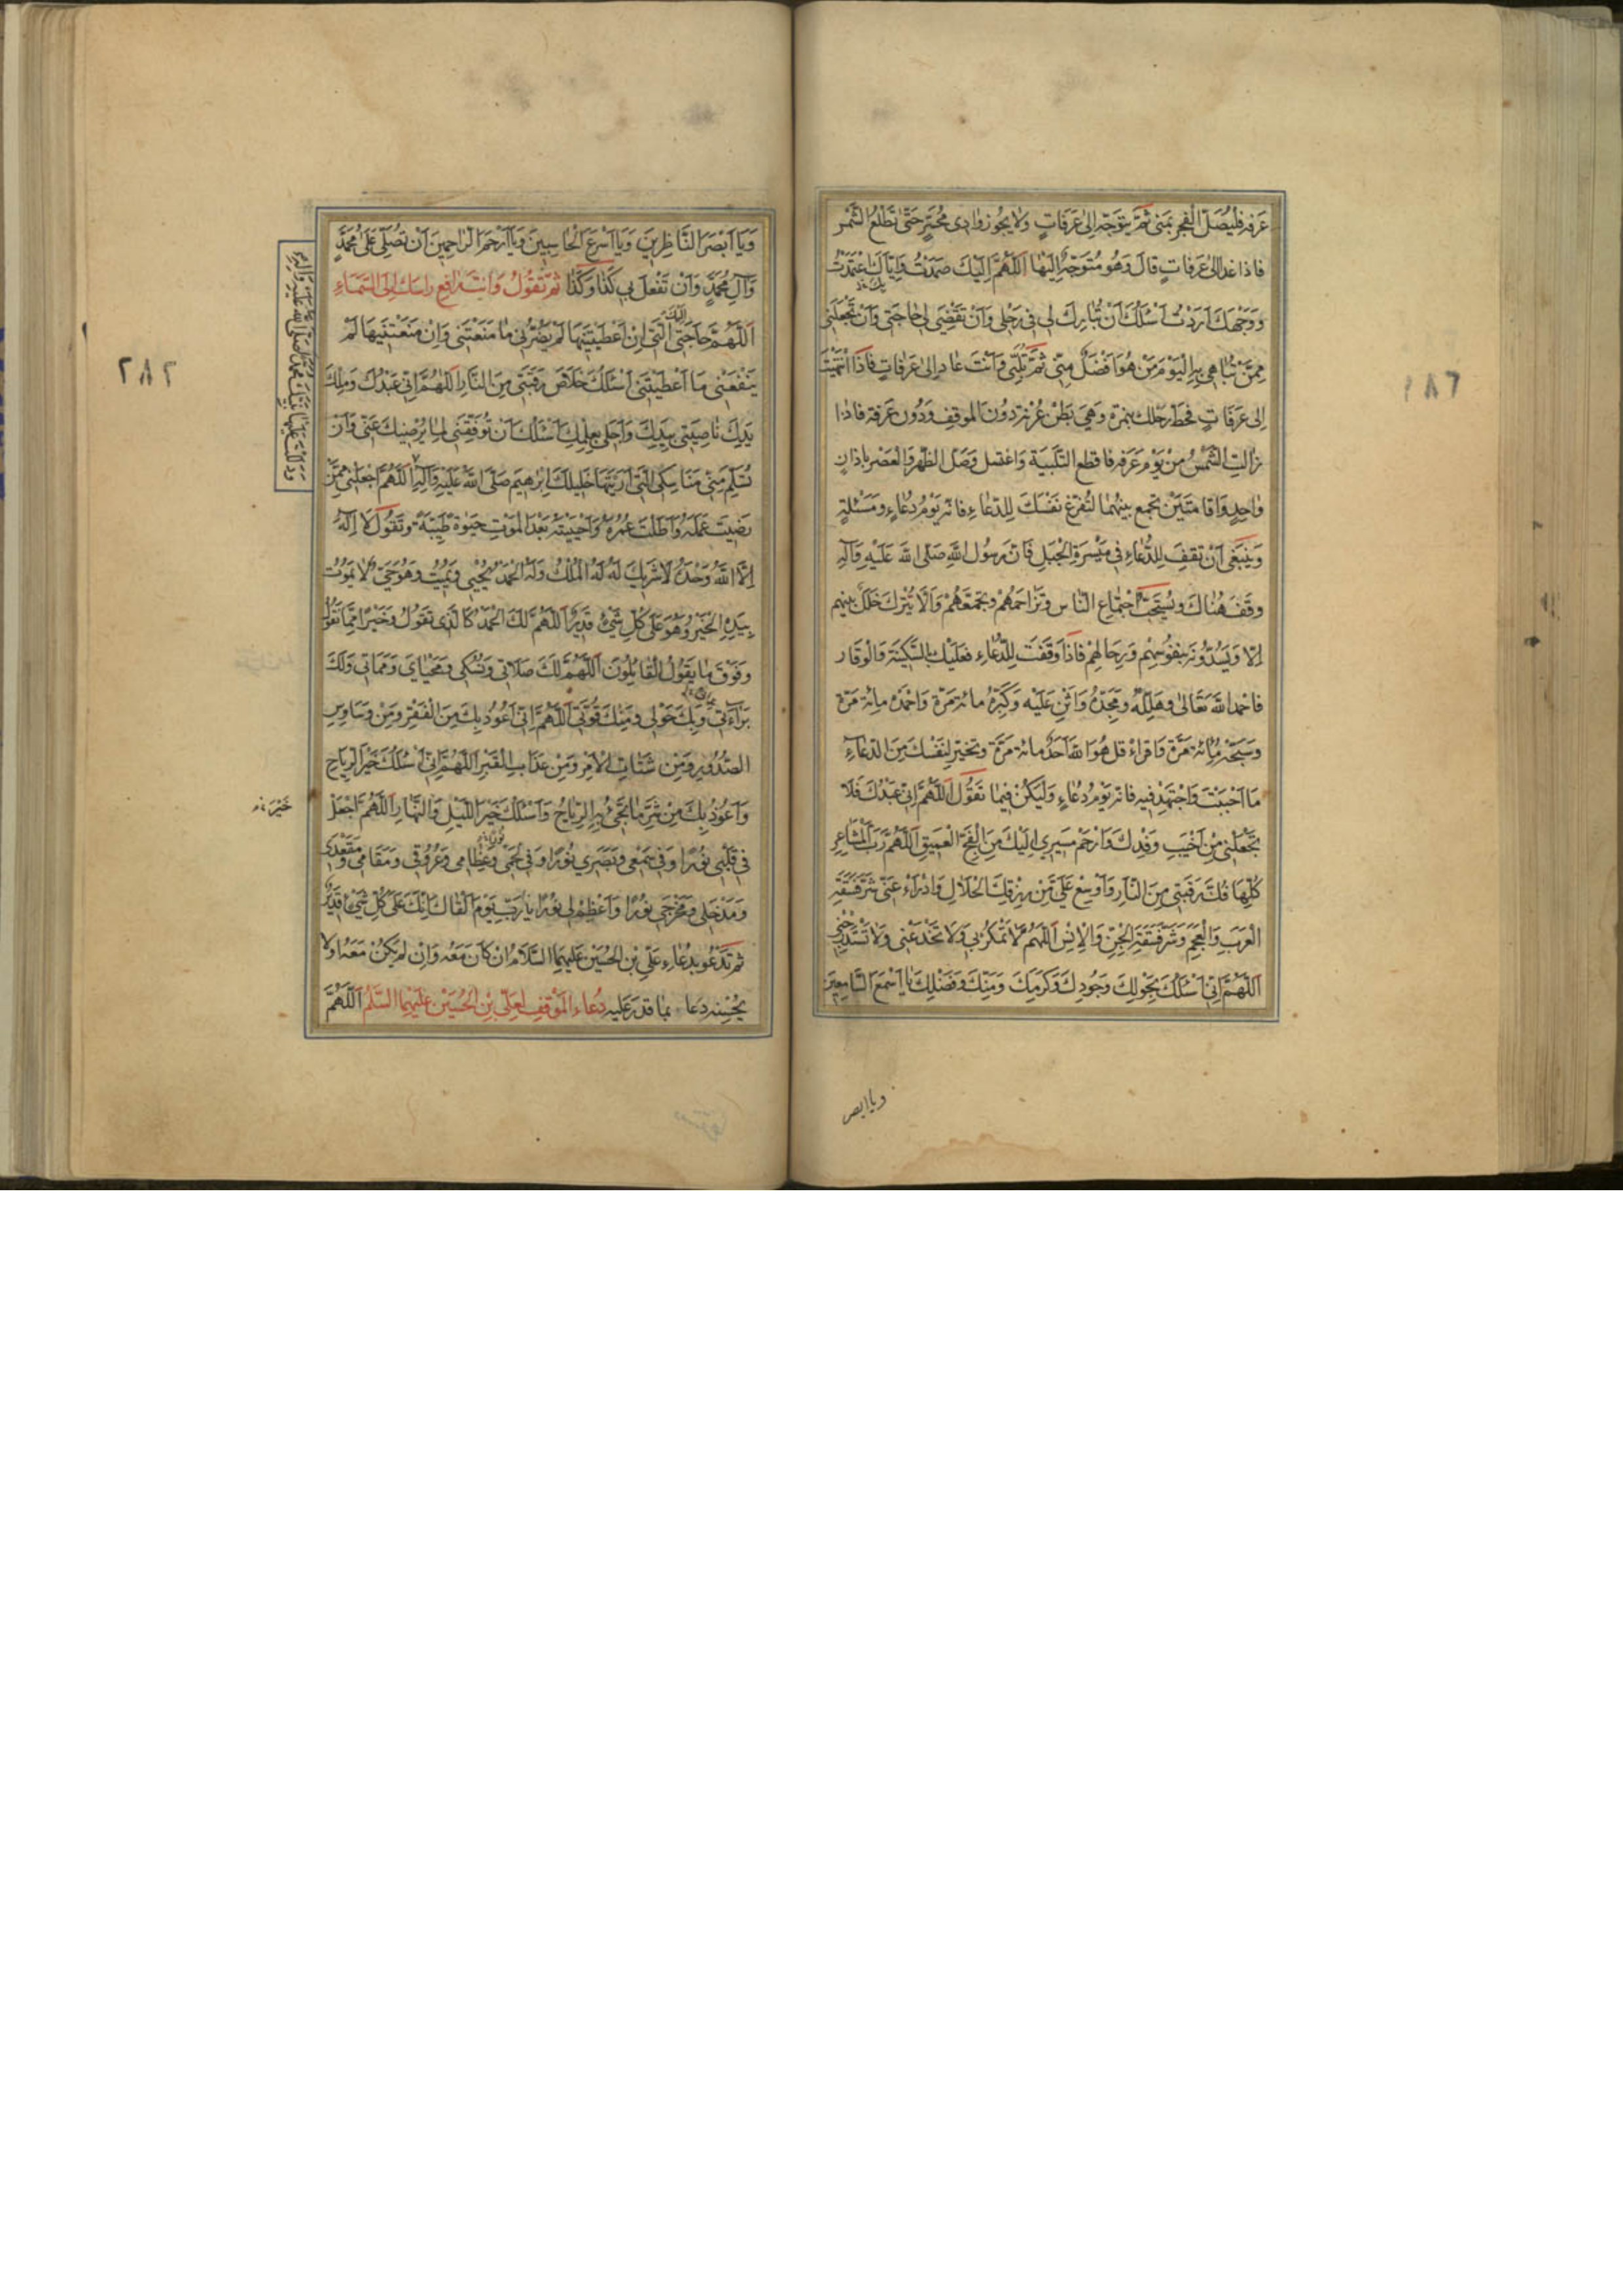 عرفه فليصلّ الفجر بمنى ثمّ يتوجّه الى عَرَفاتٍ ولا يجوز وادى محسّرٍ حتّى تطلع الشّمس
فاذا غدا الى عرفات قالَ وَهُو مُتَوجّهٌ اِلَيْها اَللّهُمَّ اِلَيْكَ صَمَدْتُ وَاِيّاكَ اعْتَمَدْتُ
وَوَجْهَكَ اَرَدْتُ اَسْئَلُكَ اَنْ تُبارِكَ لى فى رَحْلى وَاَنْ تَقْضِىَ لى حاجَتى وَاَنْ تَجْعَلَنى
مِمَّنْ تُباهى بِهِ الْيَوْمَ مَنْ هُوَ اَفْضَلُ مِنّى ثُمَّ تلبّى وَاَنْتَ غادٍ اِلى عَرَفاتٍ فاذا انتهيت
اِلى عَرَفاتٍ فحطّ رحلك بنمرة وَهِىَ بَطْن عُرنة دُونَ الموقف وَدُون عَرفة فاذا
زالتِ الشّمْسُ من يَوْم عَرَفة فاقطع التّلبيَة وَاغتسل وَصَلّ الظّهر وَالعَصر باذانٍ
واحِدٍ وَاقامتَيْن تجمع بينهُما لتُفرغ نَفْسَكَ لِلدّعاءِ فانّه يَوْمُ دُعاءٍ وَمَسْئلةٍ
وَينبَغى اَنْ تقفَ لِلدُّعاءِ فى مَيْسَرةِ الْجَبَلِ فَاِنّ رَسُول اللهِ صَلّى اللهُ عَلَيْهِ وَآلِهِ
وقَفَ هُناكَ ويُسْتَحَبّ اجتماع النّاس وتزاحمهُمْ وتجمّعهُمْ وَاَلّا يُترك خَلَلٌ بينهم
اِلّا وَيَسُدّونه بنفوسِهِمْ وَرحالهِمْ فاذا وَقَفْت لِلدُّعاءِ فعَلَيْك بالسّكينة وَالوَقار
فاحمد اللهَ تَعالى وهَلّلهُ ومجّدهُ وَاَثْنِ عَلَيْه وَكَبّرْهُ مائة مَرّة وَاحْمَدْه مائة مَرّة
وسَبّحْهُ مائة مَرّة وَاقراءْ قل هُوَ اللهُ اَحَدٌ مائة مَرّة وتخيّر لنَفْسِكَ مِنَ الدّعاءِ
ما احْبَبْتَ وَاجْتَهِدْ فيه فانّه يَوْمُ دُعاءٍ وَليَكُنْ فيما تَقُولُ اَللّهُمَّ اِنّى عَبْدُكَ فَلا
تَجْعَلْنى مِنْ اَخْيَبِ وَفْدِكَ وَارْحَمْ مَسيرى اِلَيْكَ مِنَ الْفَجِّ الْعَميقِ اَللّهُمَّ رَبَّ الْمَشاعِرِ
كُلِّها فُكَّ رَقَبَتى مِنَ النّارِ وَاَوْسِعْ عَلَىَّ مِنْ رِزْقِكَ الْحَلالِ وَادْرَاءْ عَنّى شَرَّ فَسَقَةِ
الْعَرَبِ وَالْعَجَمِ وَشَرَّ فَسَقَةِ الْجِنِّ وَالْاِنْسِ اَللّهُمَّ لا تَمْكُرْ بى وَلا تَخْدَعْنى وَلا تَسْتَدْرِجْنى
اَللّهُمَّ اِنّى اَسْئَلُكَ بِحَوْلِكَ وَجُودِكَ وَكَرَمِكَ وَمَنِّكَ وَفَضْلِكَ يا اَسْمَعَ السّامِعينَ
ويا ابصر
وَيا اَبْصَرَ النّاظِرينَ وَيا اَسْرَعَ الْحاسِبينَ وَيا اَرْحَمَ الرّاحِمينَ اَنْ تُصَلِّىَ عَلى مُحَمَّدٍ
وَآلِ مُحَمَّدٍ وَاَنْ تَفْعَلَ بى كَذا وَكَذا ثمّ تَقُولُ وَانتَ رافِع راسَك اِلَى السَّماءِ
اَللّهُمَّ حاجَتى اِلَيْكَ الَّتى اِنْ اَعْطَيْتَنيها لَمْ يَضُرَّنى ما مَنَعْتَنى وَاِنْ مَنَعْتَنيها لَمْ
يَنْفَعْنى ما اَعْطَيْتَنى اَسْئَلُكَ خَلاصَ رَقَبَتى مِنَ النّارِ اَللّهُمَّ اِنّى عَبْدُكَ وَمِلْكُ
يَدِكَ ناصِيَتى بِيَدِكَ وَاَجَلى بِعِلْمِكَ اَسْئَلُكَ اَنْ تُوَفِّقَنى لِما يُرْضيكَ عَنّى وَاَنْ
تُسَلِّمَ مِنّى مَناسِكِى الَّتى اَرَيْتَها خَليلَكَ اِبْرهيمَ صَلَّى اللهُ عَلَيْهِ وَآلِهِ اَللّهُمَّ اجْعَلْنى مِمَّنْ
وَدَلَلْتَ عَلَيْها نَبِيَّكَ مُحَمَّدًا صَلَّى اللهُ عَلَيْهِ وَآلِهِ
رَضيتَ عَمَلَهُ وَاَطَلْتَ عُمُرَهُ وَاَحْيَيْتَهُ بَعْدَ الْمَوْتِ حَيوةً طَيِّبَةً وتَقُول لا اِلهَ
اِلَّا اللهُ وَحْدَهُ لا شَريكَ لَهُ لَهُ الْمُلْكُ وَلَهُ الْحَمْدُ يُحْيى وَيُميتُ وَهُوَ حَىٌّ لا يَمُوتُ
بِيَدِهِ الْخَيْرُ وَهُوَ عَلى كُلِّ شَىْءٍ قَديرٌ اَللّهُمَّ لَكَ الْحَمْدُ كَالَّذى تَقُولُ وَخَيْرًا مِمّا نَقُولُ
وَفَوْقَ ما يَقُولُ الْقائِلُونَ اَللّهُمَّ لَكَ صَلاتى وَنُسُكى وَمَحْياىَ وَمَماتى وَلَكَ
بَراءَتى وَبِكَ حَوْلى وَمِنْكَ قُوَّتى اَللّهُمَّ اِنّى اَعُوذُ بِكَ مِنَ الْفَقْرِ وَمِنْ وَساوِسِ
الصُّدُورِ وَمِنْ شَتاتِ الْاَمْرِ وَمِنْ عَذابِ الْقَبْرِ اَللّهُمَّ اِنّى اَسْئَلُكَ خَيْرَ الرِّياحِ
وَاَعُوذُ بِكَ مِنْ شَرِّ ما تَجىءُ بِهِ الرِّياحُ وَاَسْئَلُكَ خَيْرَ اللَّيْلِ وَالنَّهارِ اَللّهُمَّ اجْعَلْ
خَيْرَ
فى قَلْبى نُورًا وَفى سَمْعى وَبَصَرى نُورًا وَفى لَحْمى وَعِظامى وَعُرُوقى وَمَقامى وَمَقْعَدى
وَمَدْخَلى وَمَخْرَجى نُورًا وَاَعْظِمْ لى نُورًا يا رَبِّ يَوْمَ اَلْقاكَ اِنَّكَ عَلى كُلِّ شَىْءٍ قَديرٌ
ثمّ تَدْعُو بدُعاءِ عَلىّ بْنِ الحُسَيْن عَليهِمَا السَّلامُ ان كانَ مَعَهُ وَاِنْ لم يَكُنْ مَعَهُ اَوْلا
يُحْسِنه دَعا بما قدَرَ عَليه دُعاء المَوْقِفِ لِعَلِىِّ بْنِ الْحُسَيْنِ عَلَيْهِمَا السَّلمُ اَللّهُمَّ
٢٨٢